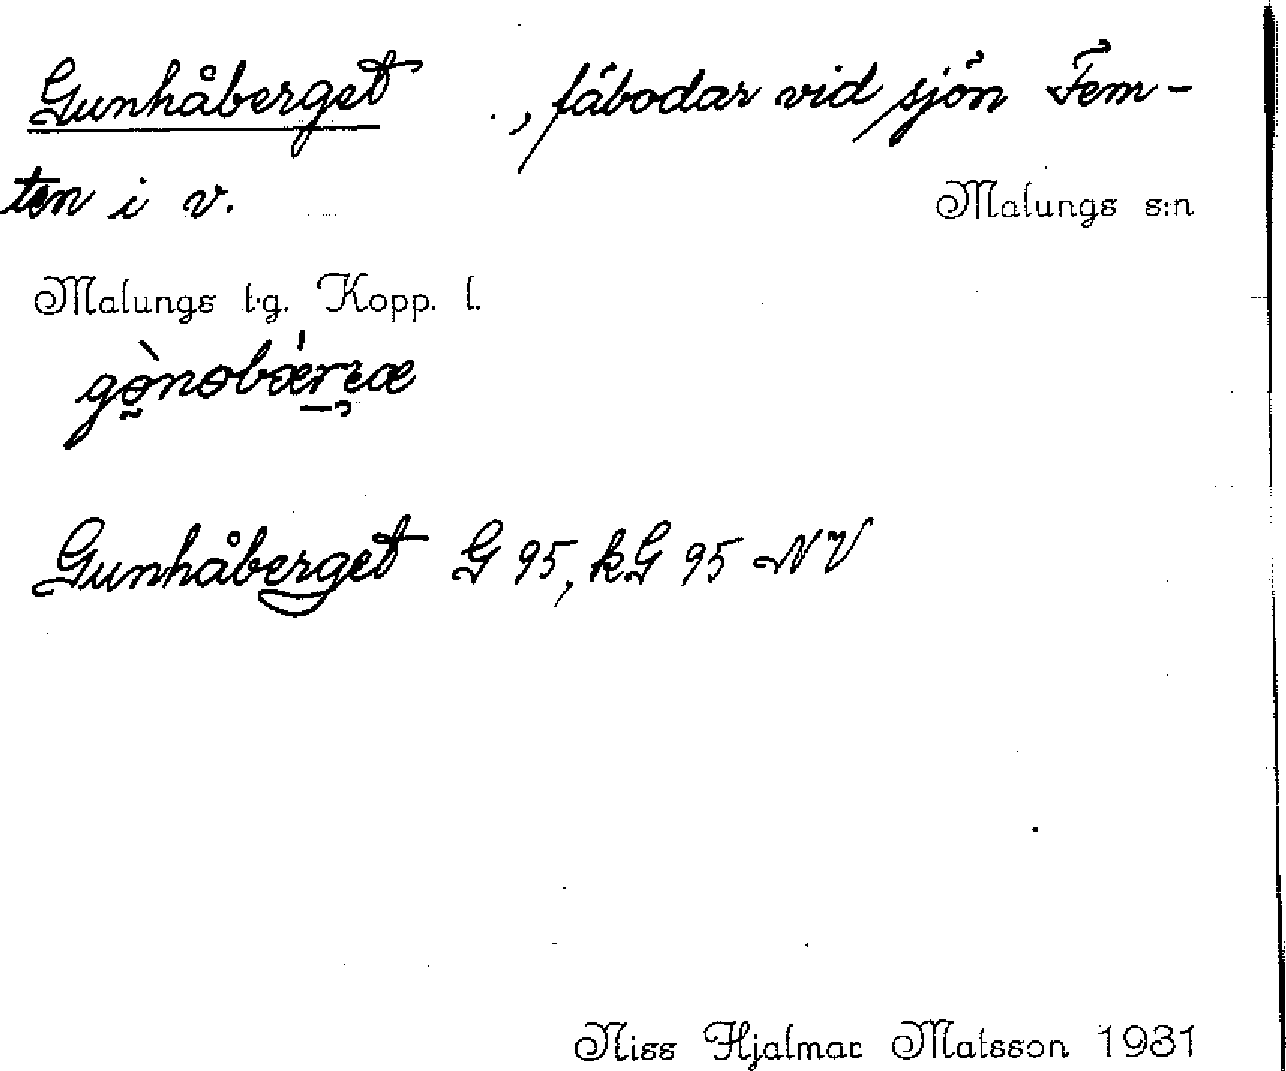 Gunhåberget , fäbodar vid sjön Tem-
ten i v. Malungs s:n
Malungs t.g. Kopp. l.
Gunhåberget G 95, kG 95 NV
Niss Hjalmar Matsson 1931